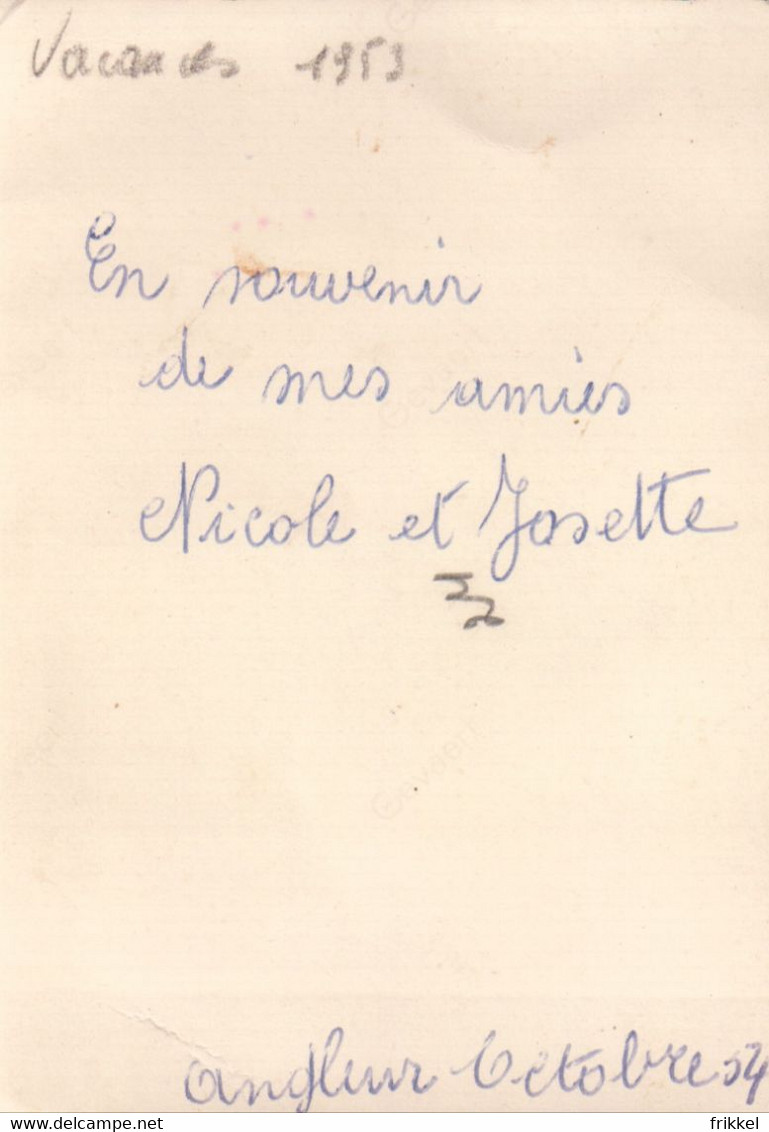 Vacances 1953
En souvenir
de mes amies
Nicole et Josette
Angleur Octobre 54
Gevaert
Gevaert
www.delcampe.net
frikkel